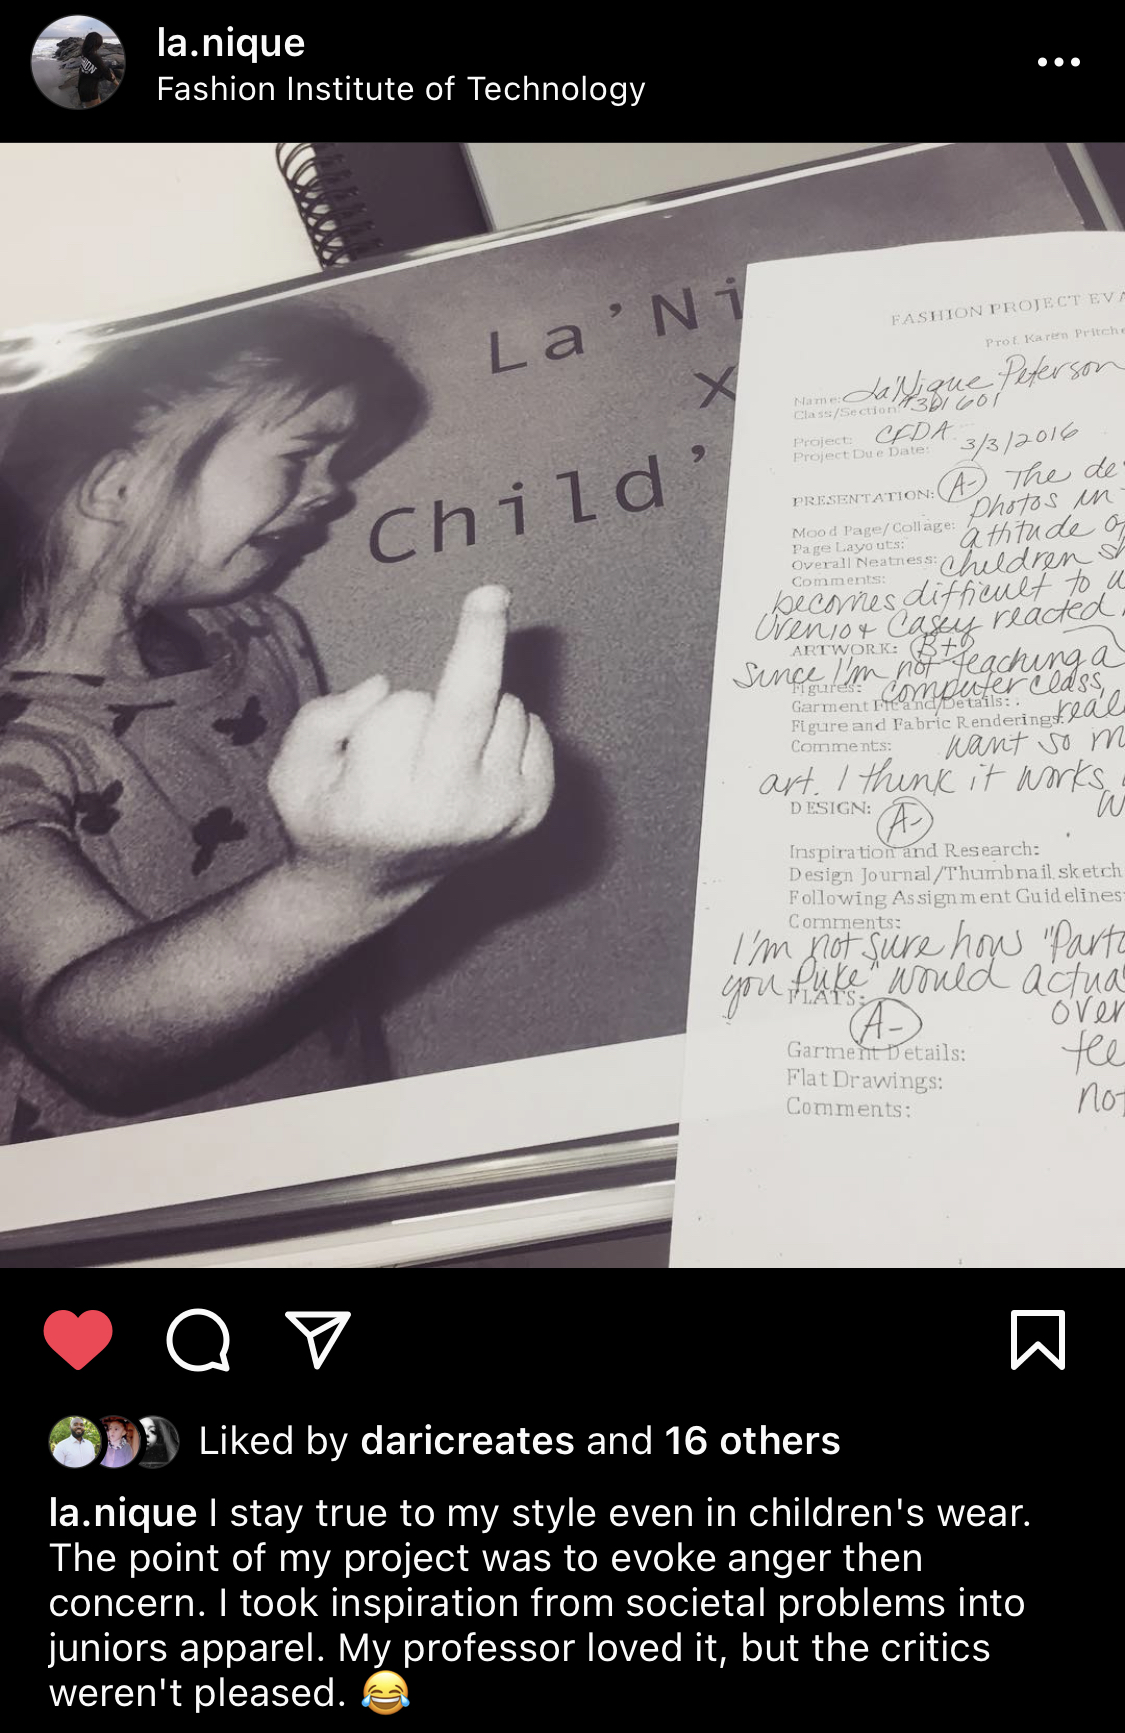 la.nique
Fashion Institute of Technology
La'Ni
X
Child'
FASHION PROJECT EVA
Prof. Karen Pritche
Name: La'Nique Peterson
Class/Section:
Project: CFDA
Project Due Date: 3/3/2016
PRESENTATION: A- The de
photos in
Mood Page/Collage: attitude of
Page Layouts:
Overall Neatness: children sh
Comments:
becomes difficult to
& Casey reacted
ARTWORK: B+
Since I'm not teaching a
Figures: computer class,
Garment Fit and Details:
Figure and Fabric Renderings: real
Comments: want so m
art. I think it works
DESIGN: A- w
Inspiration and Research:
Design Journal/Thumbnail sketch
Following Assignment Guidelines
Comments:
I'm not sure how "Part
you Puke" would actua
FLATS: over
A-
Garment Details: tee
Flat Drawings:
Comments: not
Liked by daricreates and 16 others
la.nique I stay true to my style even in children's wear.
The point of my project was to evoke anger then
concern. I took inspiration from societal problems into
juniors apparel. My professor loved it, but the critics
weren't pleased. 😂